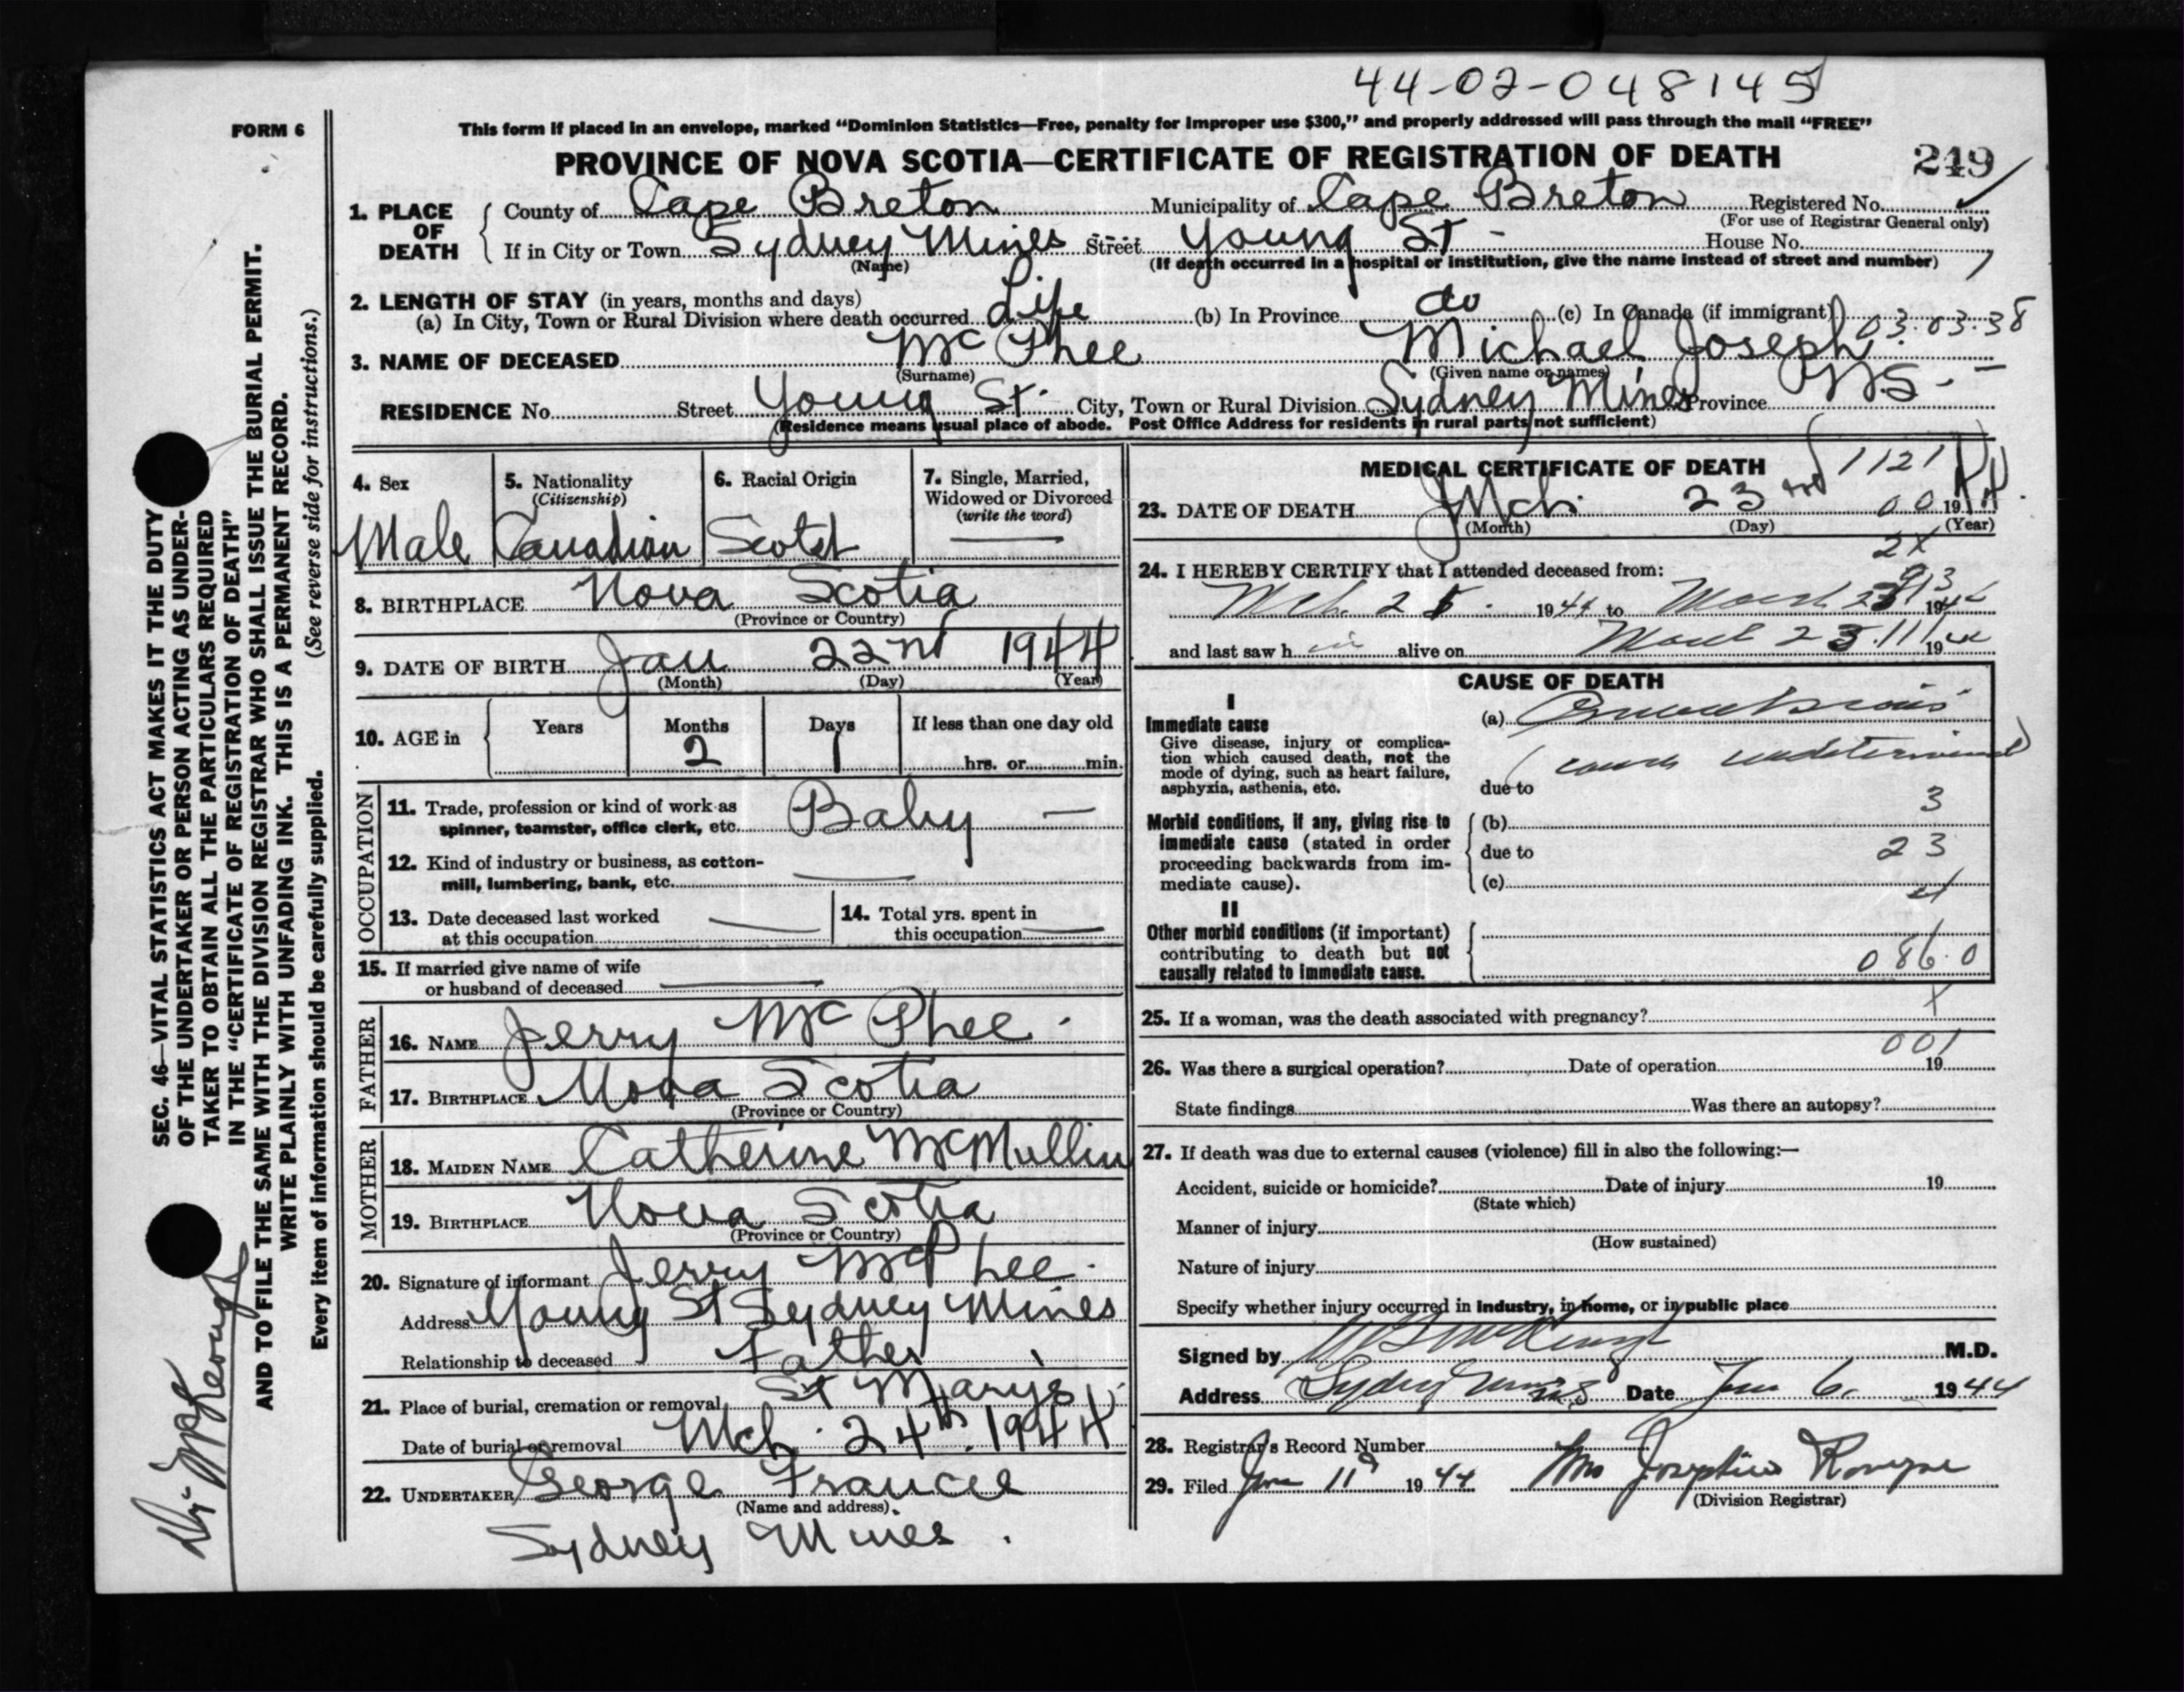 44-02-048145
FORM 6
This form if placed in an envelope, marked "Dominion Statistics—Free, penalty for improper use $300," and properly addressed will pass through the mail "FREE"
PROVINCE OF NOVA SCOTIA—CERTIFICATE OF REGISTRATION OF DEATH 249
1. PLACE OF DEATH County of Cape Breton Municipality of Cape Breton Registered No.
(For use of Registrar General only)
If in City or Town Sydney Mines Street Young St - House No.
(Name) (If death occurred in a hospital or institution, give the name instead of street and number)
2. LENGTH OF STAY (in years, months and days)
(a) In City, Town or Rural Division where death occurred Life (b) In Province do (c) In Canada (if immigrant) 03.03.38
3. NAME OF DECEASED Mc Phee Michael Joseph
(Surname) (Given name or names)
RESIDENCE No. Street Young St. City, Town or Rural Division Sydney Mines Province N S -
(Residence means usual place of abode. Post Office Address for residents in rural parts not sufficient)
4. Sex 5. Nationality (Citizenship) 6. Racial Origin 7. Single, Married, Widowed or Divorced (write the word)
Male Canadian Scotch
8. BIRTHPLACE Nova Scotia
(Province or Country)
9. DATE OF BIRTH Jan 22nd 1944
(Month) (Day) (Year)
10. AGE in Years Months Days If less than one day old
2 1 hrs. or min.
OCCUPATION
11. Trade, profession or kind of work as
spinner, teamster, office clerk, etc. Baby —
12. Kind of industry or business, as cotton-
mill, lumbering, bank, etc.
13. Date deceased last worked
at this occupation
14. Total yrs. spent in
this occupation
15. If married give name of wife
or husband of deceased
FATHER
16. NAME Jerry Mc Phee -
17. BIRTHPLACE Nova Scotia
(Province or Country)
MOTHER
18. MAIDEN NAME Catherine McMullin
19. BIRTHPLACE Nova Scotia
(Province or Country)
20. Signature of informant Jerry McPhee.
Address Young St Sydney Mines
Relationship to deceased Father
21. Place of burial, cremation or removal St Marys
Date of burial or removal Mch. 24th. 1944
22. UNDERTAKER George Francis
(Name and address)
Sydney Mines .
MEDICAL CERTIFICATE OF DEATH 1121
23. DATE OF DEATH Mch. 23rd 00 1944
(Month) (Day) (Year)
2X
24. I HEREBY CERTIFY that I attended deceased from:
Mch. 1944 to March 1944
and last saw h im alive on March 23 1944
CAUSE OF DEATH
I
Immediate cause
Give disease, injury or complica-
tion which caused death, not the
mode of dying, such as heart failure,
asphyxia, asthenia, etc.
(a) Convulsions
(cause undetermined)
due to
3
Morbid conditions, if any, giving rise to
immediate cause (stated in order
proceeding backwards from im-
mediate cause).
(b)
due to 23
(c)
II
Other morbid conditions (if important)
contributing to death but not
causally related to immediate cause.
086.0
X
25. If a woman, was the death associated with pregnancy?
001
26. Was there a surgical operation? Date of operation 19
State findings Was there an autopsy?
27. If death was due to external causes (violence) fill in also the following:—
Accident, suicide or homicide? Date of injury 19
(State which)
Manner of injury
(How sustained)
Nature of injury
Specify whether injury occurred in industry, in home, or in public place
Signed by McKeough M.D.
Address Sydney Mines Date 6. 1944
28. Registrar's Record Number
29. Filed 11 1944 Mrs Josephine
(Division Registrar)
SEC. 46—VITAL STATISTICS ACT MAKES IT THE DUTY
OF THE UNDERTAKER OR PERSON ACTING AS UNDER-
TAKER TO OBTAIN ALL THE PARTICULARS REQUIRED
IN THE "CERTIFICATE OF REGISTRATION OF DEATH"
AND TO FILE THE SAME WITH THE DIVISION REGISTRAR WHO SHALL ISSUE THE BURIAL PERMIT.
WRITE PLAINLY WITH UNFADING INK. THIS IS A PERMANENT RECORD.
Every item of information should be carefully supplied. (See reverse side for instructions.)
Dr. McKeough